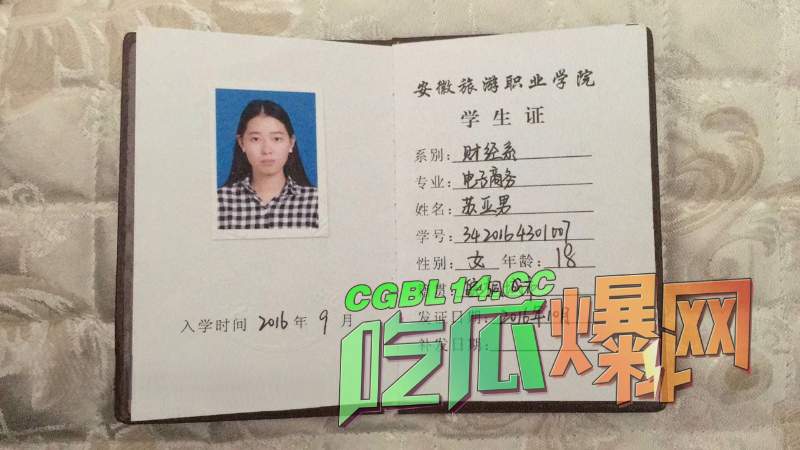 安徽旅游职业学院
学生证
系别：财经系
专业：电子商务
姓名：苏亚男
学号：3420164301007
性别：女 年龄：18
发证日期：2016年10月
补发日期：
入学时间 2016 年 9 月
CGBL14.CC
吃瓜爆网